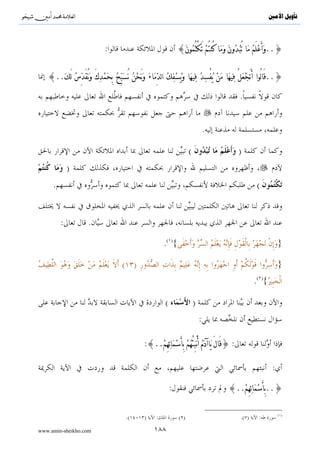 تأويل الأمين
العلامة محمد أمين شيخو
﴿..وَأَعْلَمُ مَا تُبْدُونَ وَمَا كُنْتُمْ تَكْتُمُونَ﴾ أن قول الملائكة عندما قالوا:
﴿..قَالُوا أَتَجْعَلُ فِيهَا مَنْ يُفْسِدُ فِيهَا وَيَسْفِكُ الدِّمَاءَ وَنَحْنُ نُسَبِّحُ بِحَمْدِكَ وَنُقَدِّسُ لَكَ..﴾ إنما
كان قولاً نفسياً. فقد قالوا ذلك في سرِّهم وكتموه في أنفسهم فاطَّلع الله تعالى عليه وخاطبهم به
وأراهم من علم سيدنا آدم ﷺ ما أراهم حتى جعل نفوسهم تقرُّ بحكمته تعالى وتخضع لاختياره
وعلمه، مستسلمة له مذعنة إليه.
وكما أن كلمة ( وَأَعْلَمُ مَا تُبْدُونَ ) تبيِّن لنا علمه تعالى بما أبداه الملائكة الآن من الإقرار بالحق
لآدم ﷺ، وأظهروه من التسليم لله والإقرار بحكمته في اختياره، فكذلك كلمة ( وَمَا كُنْتُمْ
تَكْتُمُونَ ) من طلبكم الخلافة لأنفسكم، وتبيِّن لنا علمه تعالى بما كتموه وأسرُّوه في أنفسهم.
وقد ذكر لنا تعالى هاتين الكلمتين ليبيِّن لنا أن علمه بالسر الذي يخفيه المخلوق في نفسه لا يختلف
عند الله تعالى عن الجهر الذي يبديه بلسانه، فالجهر والسر عند الله تعالى سيَّان. قال تعالى:
{وَإِنْ تَجْهَرْ بِالْقَوْلِ فَإِنَّهُ يَعْلَمُ السِّرَّ وَأَخْفَى}(١).
{وَأَسِرُّوا قَوْلَكُمْ أَوِ اجْهَرُوا بِهِ إِنَّهُ عَلِيمٌ بِذَاتِ الصُّدُورِ (١٣) أَلَا يَعْلَمُ مَنْ خَلَقَ وَهُوَ اللَّطِيفُ
الْخَبِيرُ}(٢).
والآن وبعد أن بيَّنا المراد من كلمة ( الأَسْمَاءَ ) الواردة في الآيات السابقة لابدَّ لنا من الإجابة على
سؤال نستطيع أن نلخِّصه بما يلي:
فإذا أوَّلنا قوله تعالى: ﴿قَالَ يَا آدَمُ أَنْبِئْهُمْ بِأَسْمَائِهِمْ..﴾:
أي: أنبئهم بأسمائي التي عرضتها عليهم، مع أن الكلمة قد وردت في الآية الكريمة
﴿..بِأَسْمَائِهِمْ..﴾ ولم ترد بأسمائي فنقول:
(١) سورة طه: الآية (٧). (٢) سورة الملك: الآية (١٣-١٤).
١٨٨
www.amin-sheikho.com